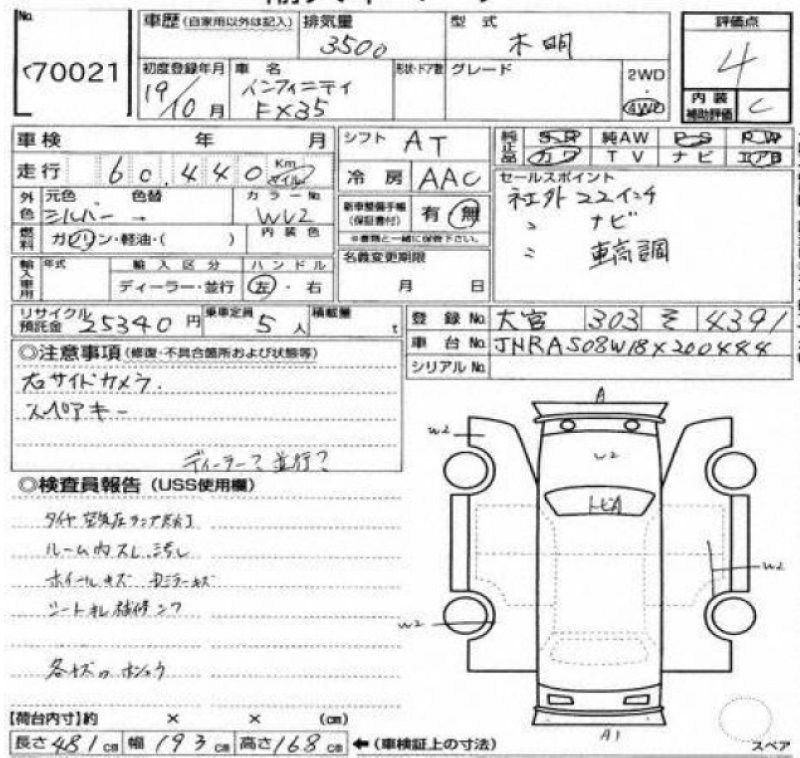 No.
70021
車歴 (自家用以外は記入)
排気量
3500
型式
不明
評価点
4
内装
補助評価
C
初度登録年月
19/10月
車名
インフィニティ
FX35
形状・ドア数
グレード
2WD
・
4WD
車検 年 月
シフト AT
純正品
SR 純AW PS PW
カワ TV ナビ エアB
走行 60,440 Km マイル
冷房 AAC
セールスポイント
社外22インチ
〃 ナビ
〃 車高調
外色
元色 色替
シルバー →
カラーNo
WV2
新車整備手帳
(保証書付)
有 ・ 無
※書類と一緒に保管下さい。
燃料
ガソリン・軽油・( )
内装色
輸入車用
年式
輸入区分
ハンドル
ディーラー・並行
左・右
名義変更期限
月 日
リサイクル
預託金
25340円
乗車定員
5人
積載量
t
登録No. 大宮 303 そ 4391
車台No. JNRAS08W18X200444
シリアルNo.
◎注意事項 (修復・不具合箇所および状態等)
右サイドカメラ.
スペアキー
ディーラー?並行?
◎検査員報告 (USS使用欄)
タイヤ空気圧ランプ点灯
ルーム内スレ.汚し
ホイールキズ
シートキレ補修
A
W2
W2
W2
W2
A1
スペア
【荷台内寸】約 × × (cm)
長さ481cm 幅193cm 高さ168cm ←(車検証上の寸法)